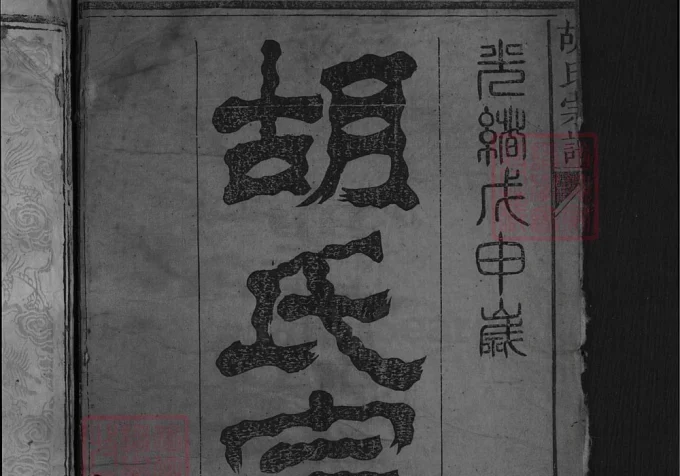 胡氏宗譜
光緒戊申歲
胡氏宗